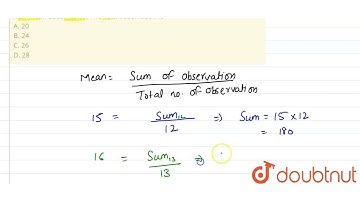 A. 20
B. 24
C. 26
D. 28
Mean = Sum of observation
Total no. of observation
15 = Sum12 / 12 ⇒ Sum = 15 × 12
= 180
16 = Sum13 / 13 ⇒
doubtnut